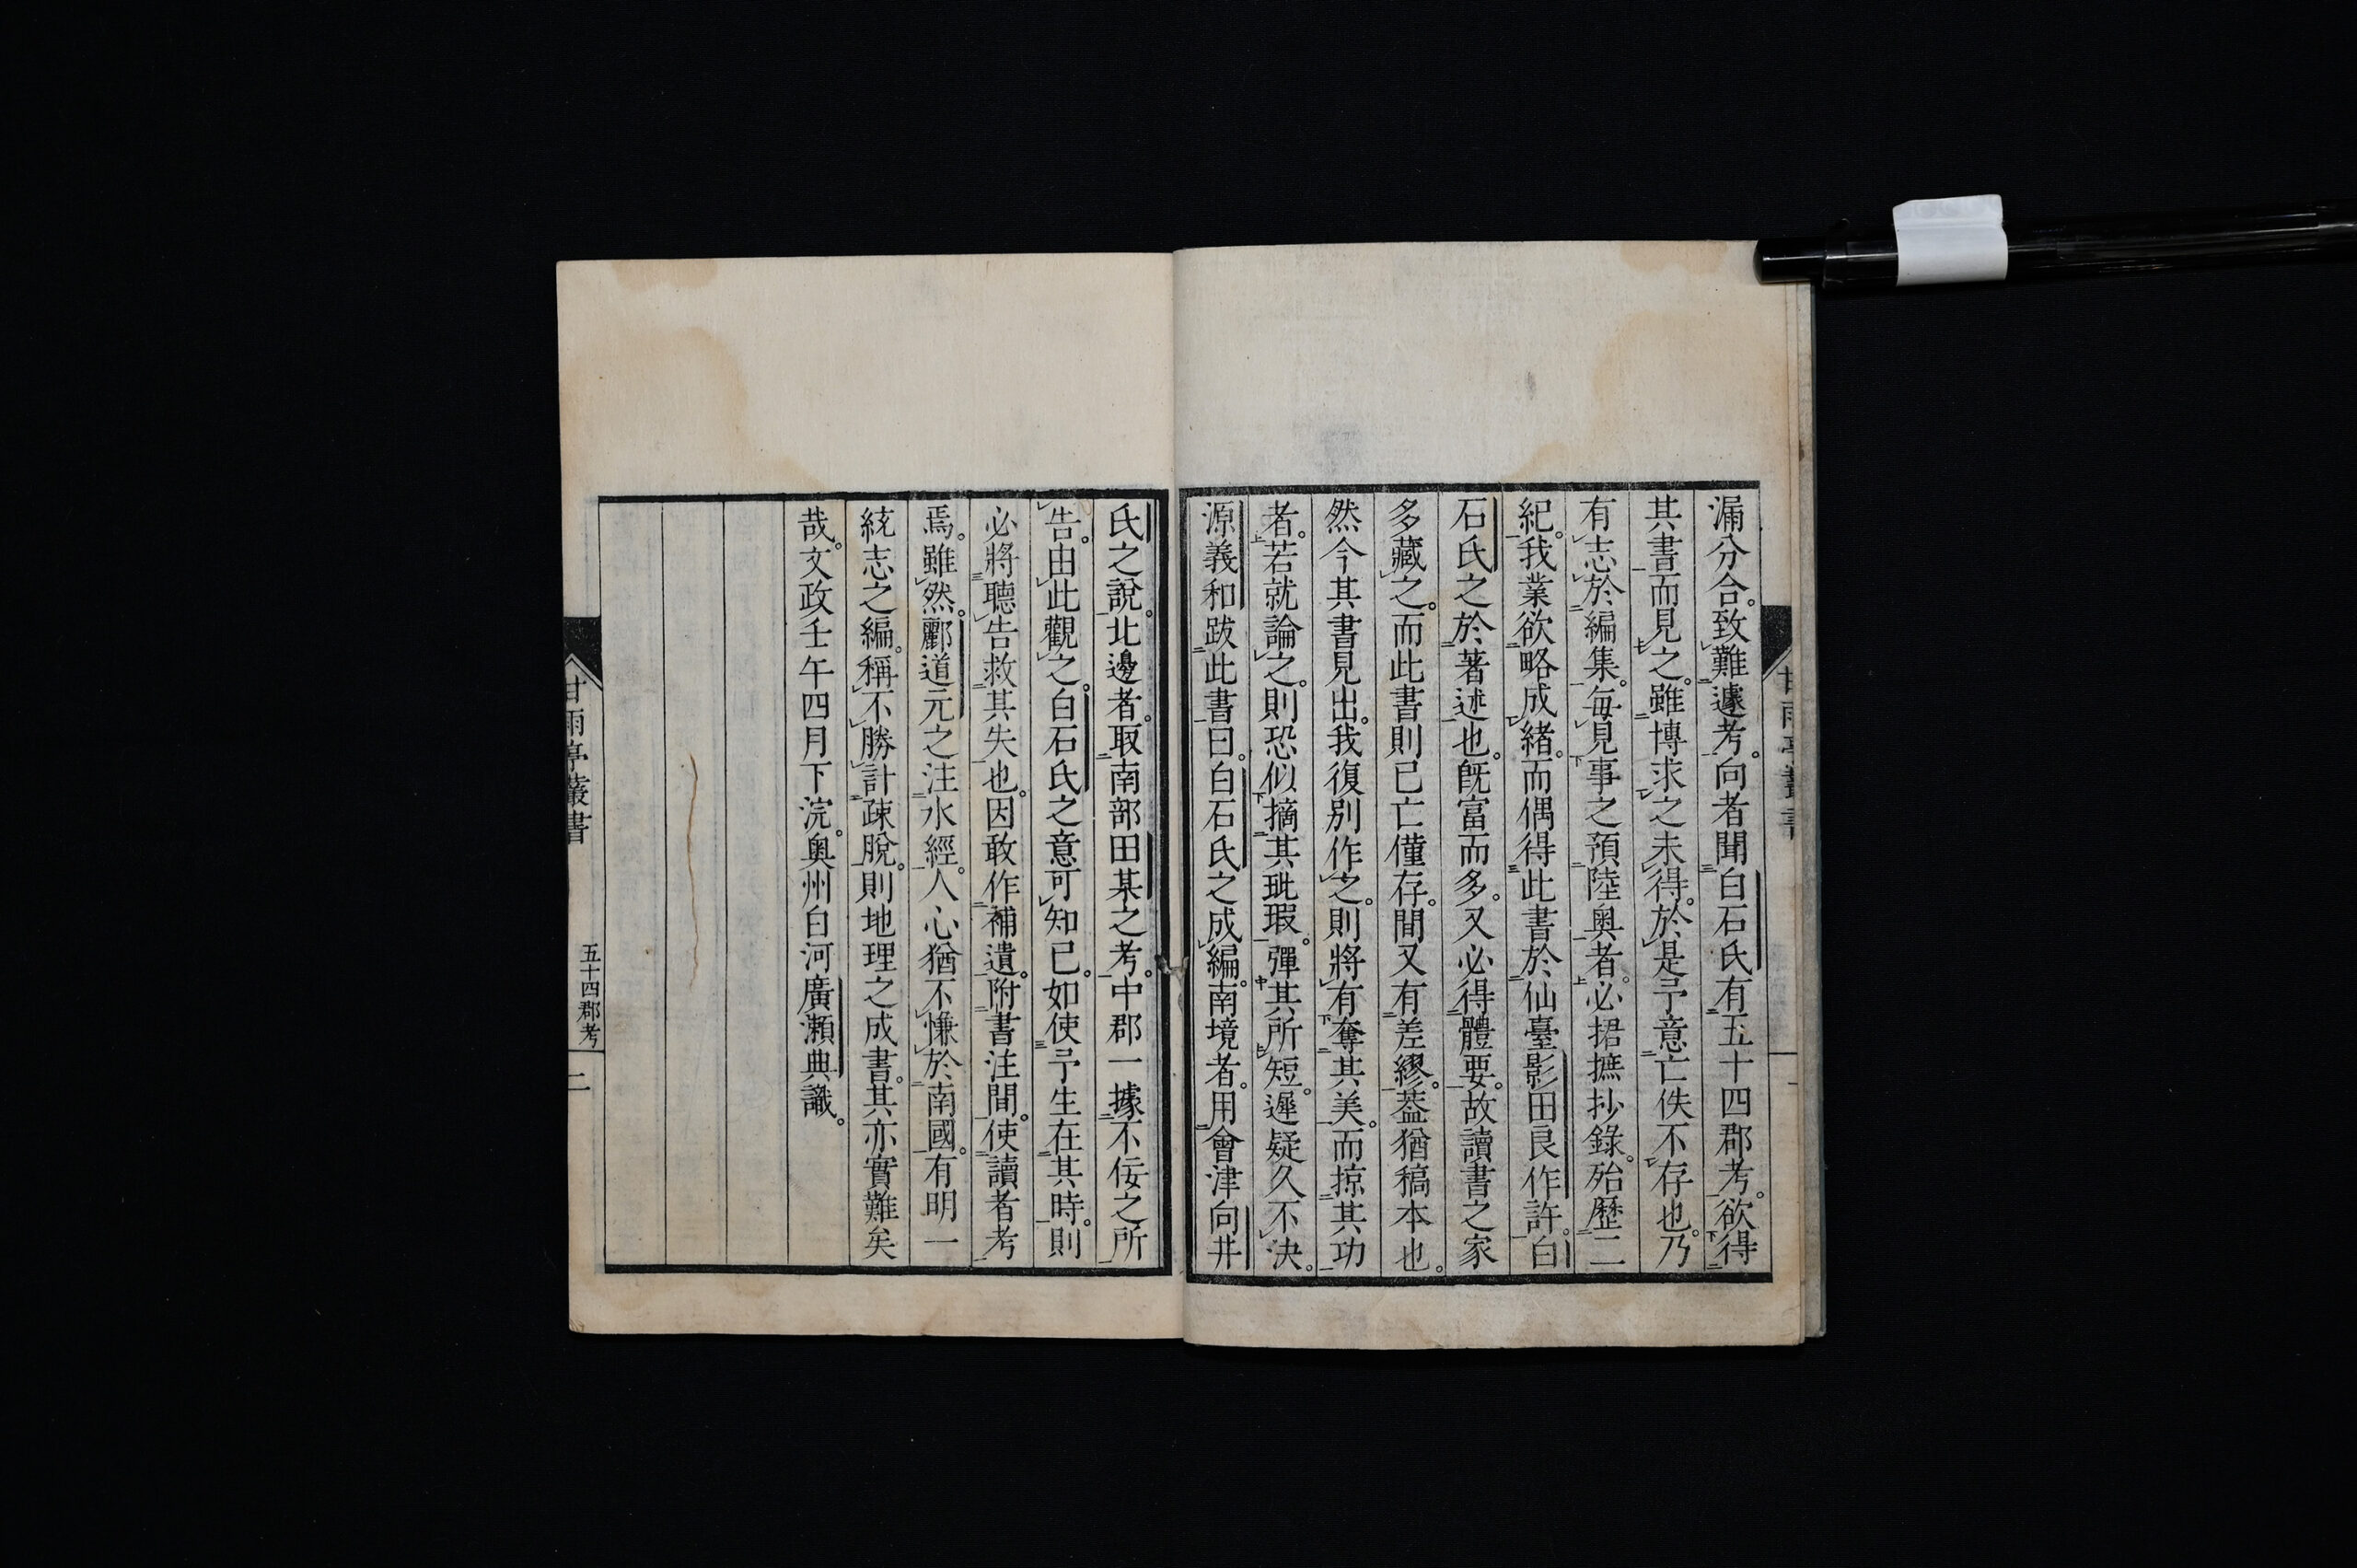 漏分合。致難遽考。向者聞白石氏有五十四郡考。欲得
其書而見之。雖博求之未得。於是予意亡佚不存也。乃
有志於編集。每見事之預陸奧者。必捃摭抄錄。殆歷二
紀。我業欲略成緒。而偶得此書於仙臺影田良作許。白
石氏之於著述也。旣富而多。又必得體要。故讀書之家
多藏之。而此書則已亡僅存。間又有差繆。蓋猶稿本也。
然今其書見出。我復別作之。則將有奪其美。而掠其功
者。若就論之。則恐似摘其玼瑕。彈其所短。遲疑久不決。
源義和跋此書曰。白石氏之成編。南境者。用會津向井
氏之說。北邊者。取南部田某之考。中郡一據不佞之所
告。由此觀之。白石氏之意可知已。如使予生在其時。則
必將聽告救其失也。因敢作補遺。附書注間。使讀者考
焉。雖然。酈道元之注水經。人心猶不慊於南國。有明一
統志之編。稱不勝計疎脫。則地理之成書。其亦實難矣
哉。文政壬午四月下浣。奧州白河廣瀨典識。
甘雨亭叢書
五十四郡考
二